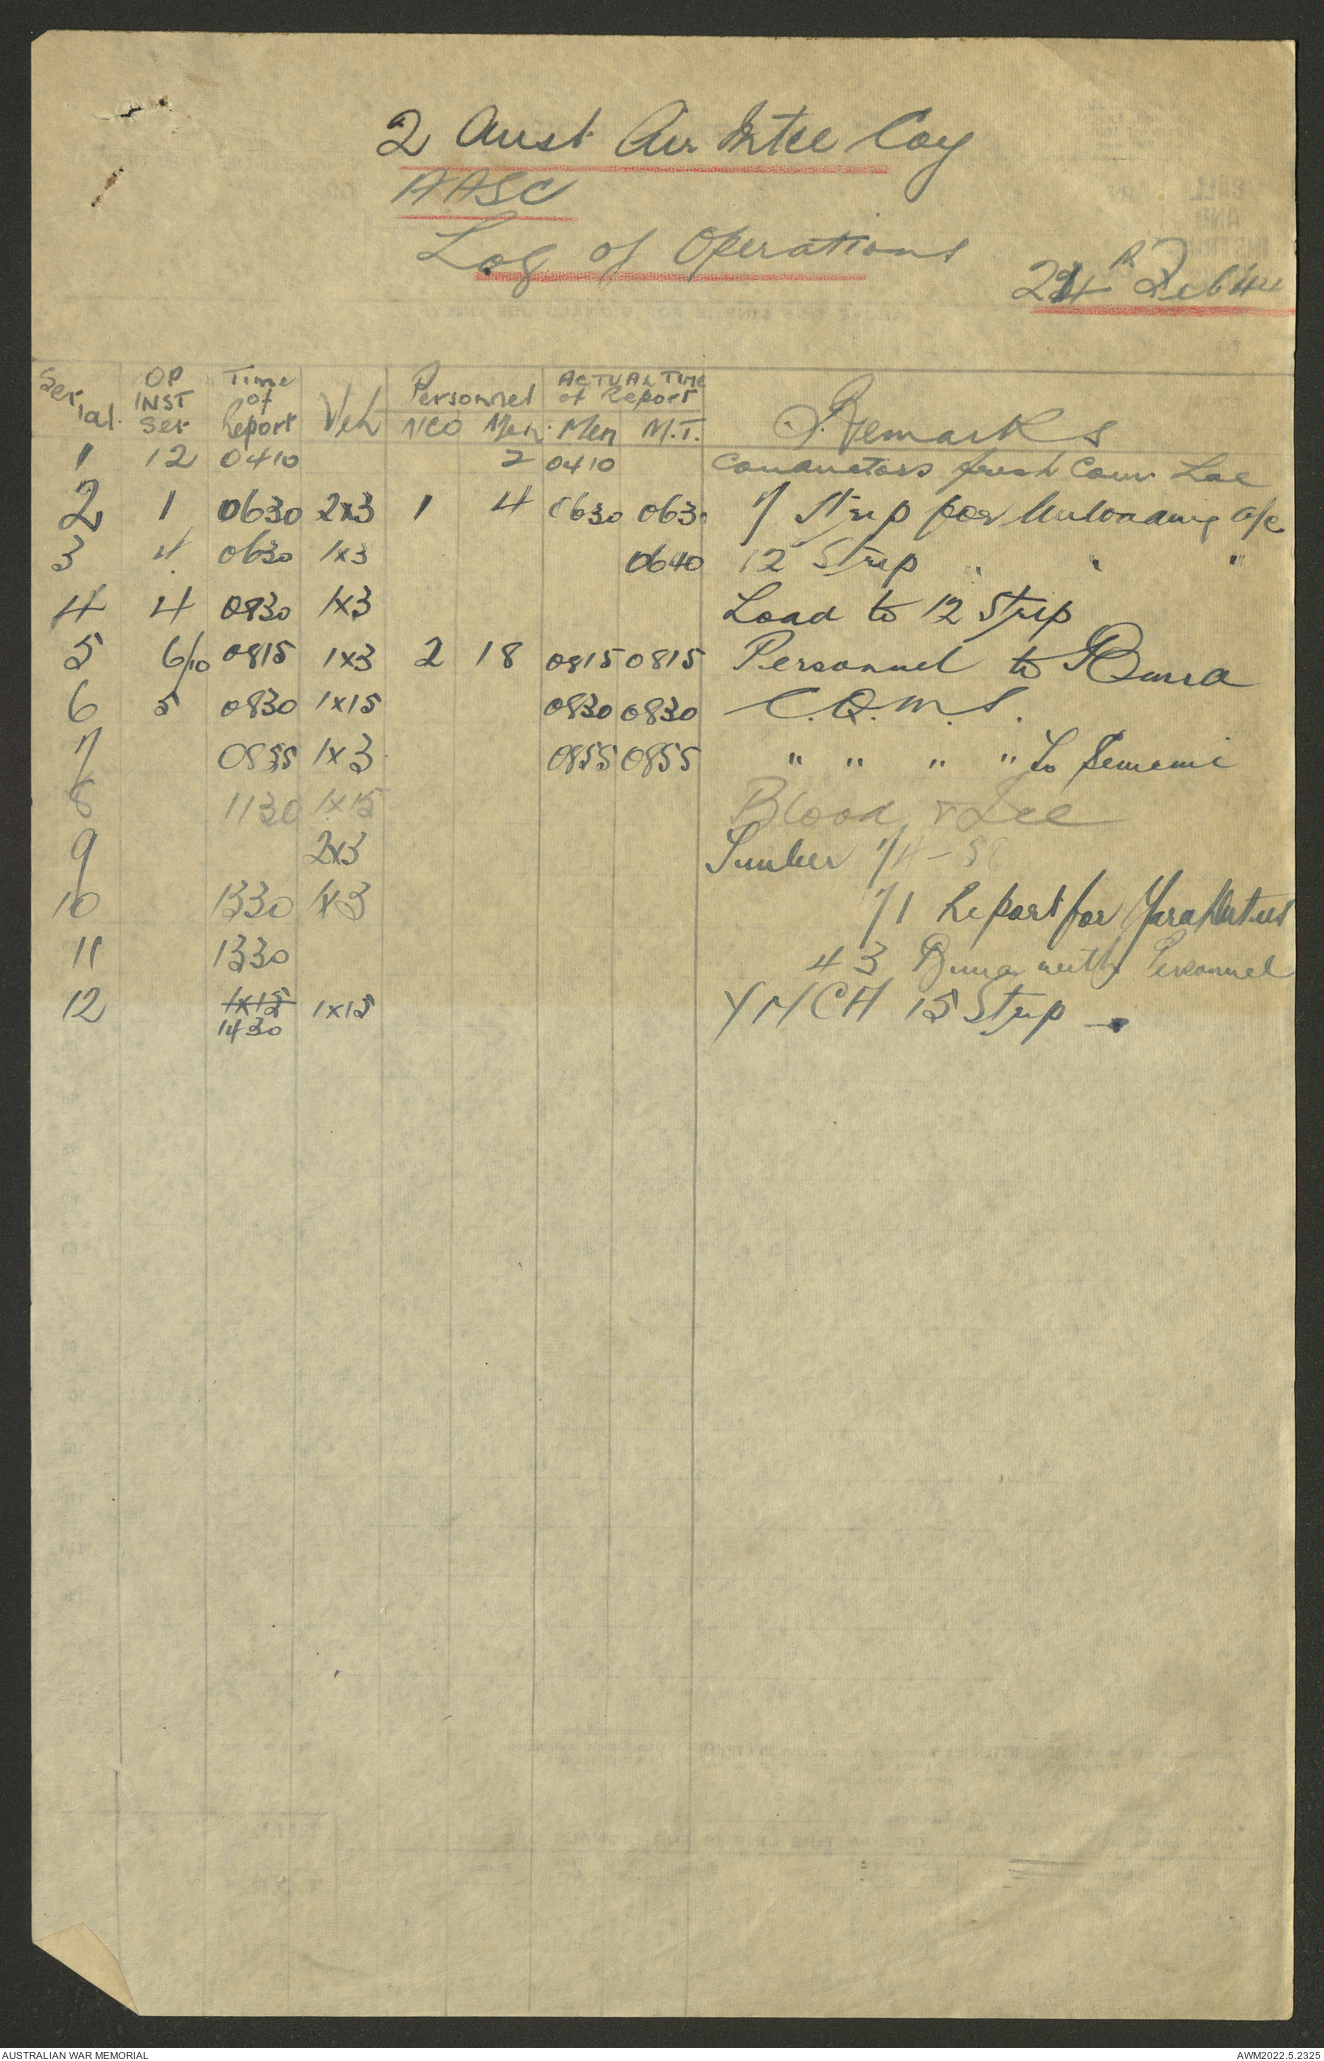 2 Aust Air Mtce Coy
AASC
Log of Operations
24th Feb 44
Serial OP INST Ser Time of Report Veh Personnel NCO Men ACTUAL TIME of Report Men M.T. Remarks
1 12 0410 2 0410 Conductors fresh
2 1 0630 2x3 1 4 0630 0630 7 Strip for Unloading a/c
3 4 0630 1x3 0640 12 Strip " " "
4 4 0830 1x3 Load to 12 Strip
5 6/10 0815 1x3 2 18 0815 0815 Personnel to Buna
6 5 0830 1x15 0830 0830 C.Q.M.S.
7 0855 1x3 0855 0855 " " " " to
8 1130 1x15 Blood & Ice
9 2x3 Timber
10 1330 1x3 71 Report for Yard duties
11 1330 43 Buna with Personnel
12 1x15 1430 1x15 YMCA 15 Strip
AUSTRALIAN WAR MEMORIAL AWM2022.5.2325